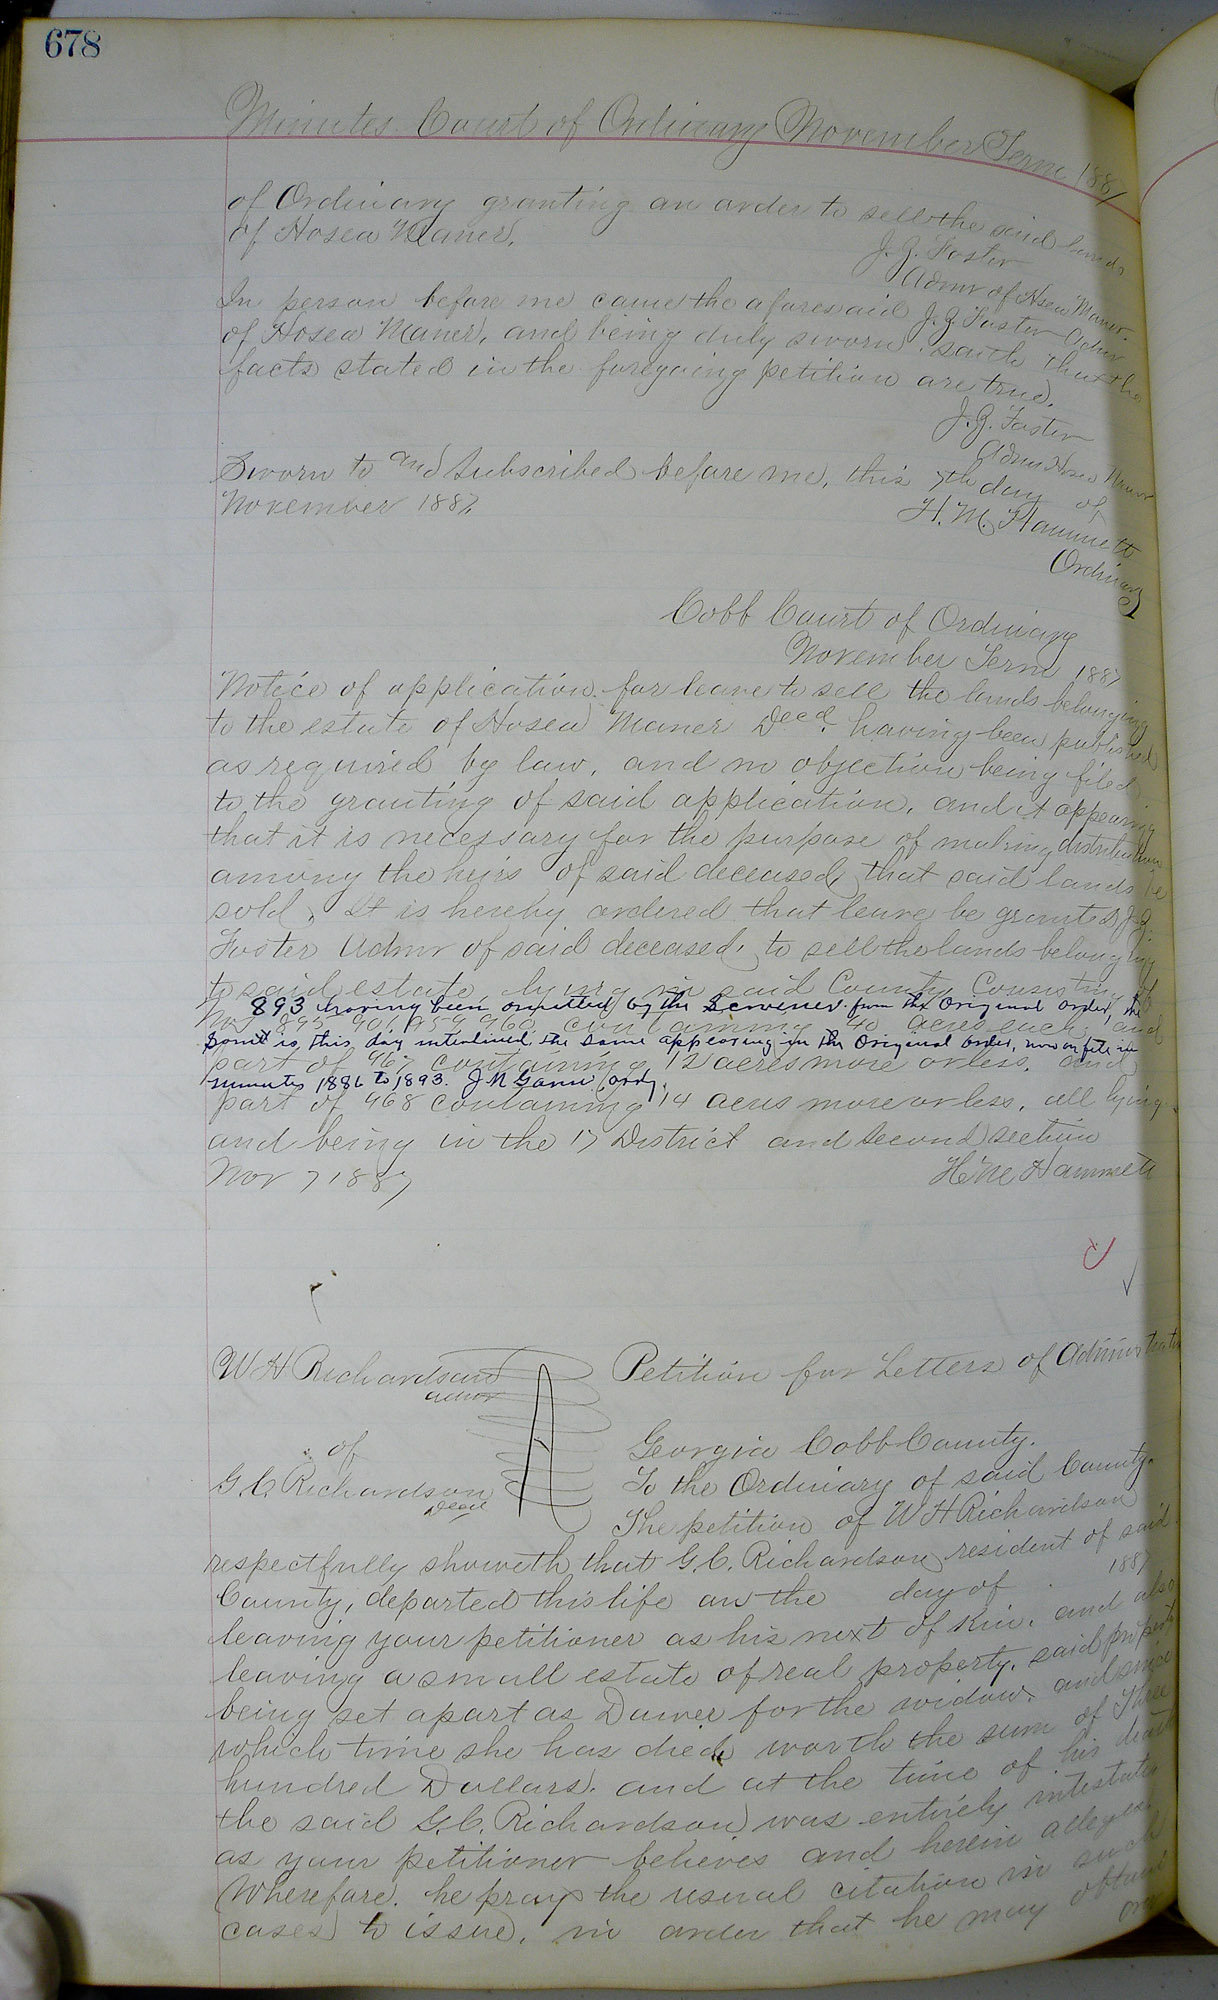 678
Minutes Court of Ordinary November Term 1887
of Ordinary granting an order to sell the said lands
of Hosea Maner.
J. G. Foster
Admr of Hosea Maner.
In person before me came the aforesaid J. G. Foster Admr
of Hosea Maner, and being duly sworn saith that the
facts stated in the foregoing petition are true.
J. G. Foster
Admr Hosea Maner
Sworn to and Subscribed before me, this 7th day of
November 1887.
H. M. Hammett
Ordinary
Cobb Court of Ordinary
November Term 1887
Notice of application for leave to sell the lands belonging
to the estate of Hosea Maner Decd. having been published
as required by law, and no objection being filed
to the granting of said application, and it appearing
that it is necessary for the purpose of making distribution
among the heirs of said deceased, that said lands be
sold, It is hereby ordered that leave be granted J. G.
Foster Admr of said deceased, to sell the lands belonging
to said estate, lying in said County, Consisting of
893 having been omitted by the Scrivener from the Original order, the
Nos 895, 901, 959, 960, containing 40 acres each, and
Same is this day interlined, the same appearing in the Original order, now on file in
part of 967 containing 12 acres more or less, and
minutes 1886 to 1893. J M Gann, Ordy.
part of 968 containing 14 acres more or less, all lying
and being in the 17 District and Second section
Nov 7 1887
H M Hammett
W H Richardson
admr
of
G. C. Richardson
Decd
Petition for Letters of Administration
Georgia Cobb County.
To the Ordinary of said County.
The petition of W H Richardson
respectfully showeth that G. C. Richardson, resident of said
County, departed this life on the day of 1887
leaving your petitioner as his next of kin, and also
leaving a small estate of real property, said property
being set apart as Dower for the widow, and since
which time she has died, worth the sum of Three
hundred Dollars, and at the time of his death
the said G. C. Richardson was entirely intestate
as your petitioner believes and herein alleges.
Wherefore, he prays the usual citation in such
cases to issue, in order that he may obtain